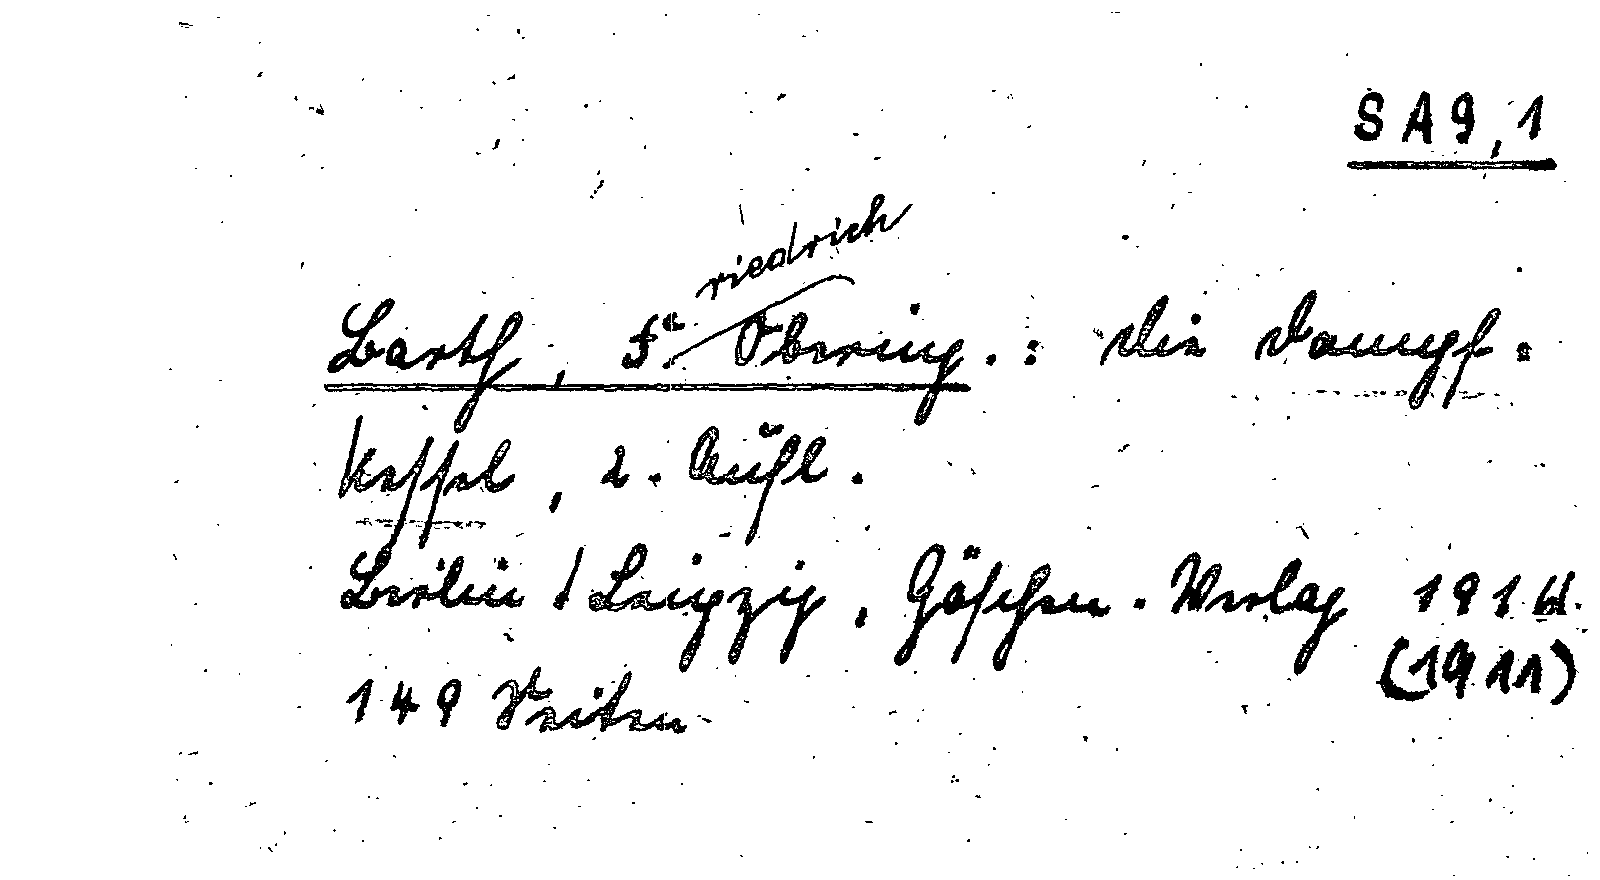 SA9,1
riedrich
Barth, F. Obering.: Die Dampf-
kessel, 2. Aufl.
Berlin / Leipzig, Göschen-Verlag
(1911)
149 Seiten